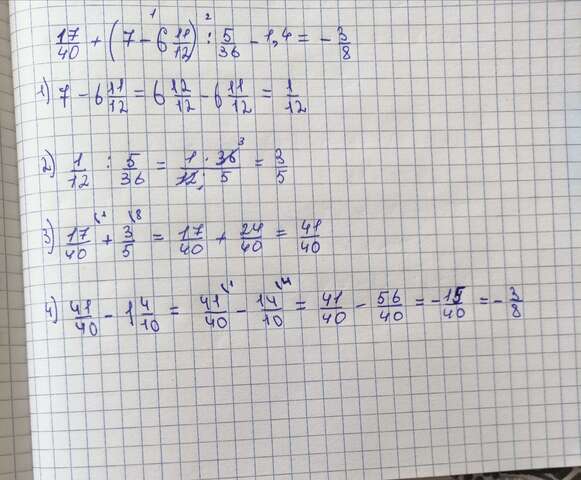 17/40 + (7 - 6 11/12) : 5/36 - 1,4 = - 3/8
1) 7 - 6 11/12 = 6 12/12 - 6 11/12 = 1/12
2) 1/12 : 5/36 = 1 · 36/12 · 5 = 3/5
3) 17/40 + 3/5 = 17/40 + 24/40 = 41/40
4) 41/40 - 1 4/10 = 41/40 - 14/10 = 41/40 - 56/40 = - 15/40 = - 3/8